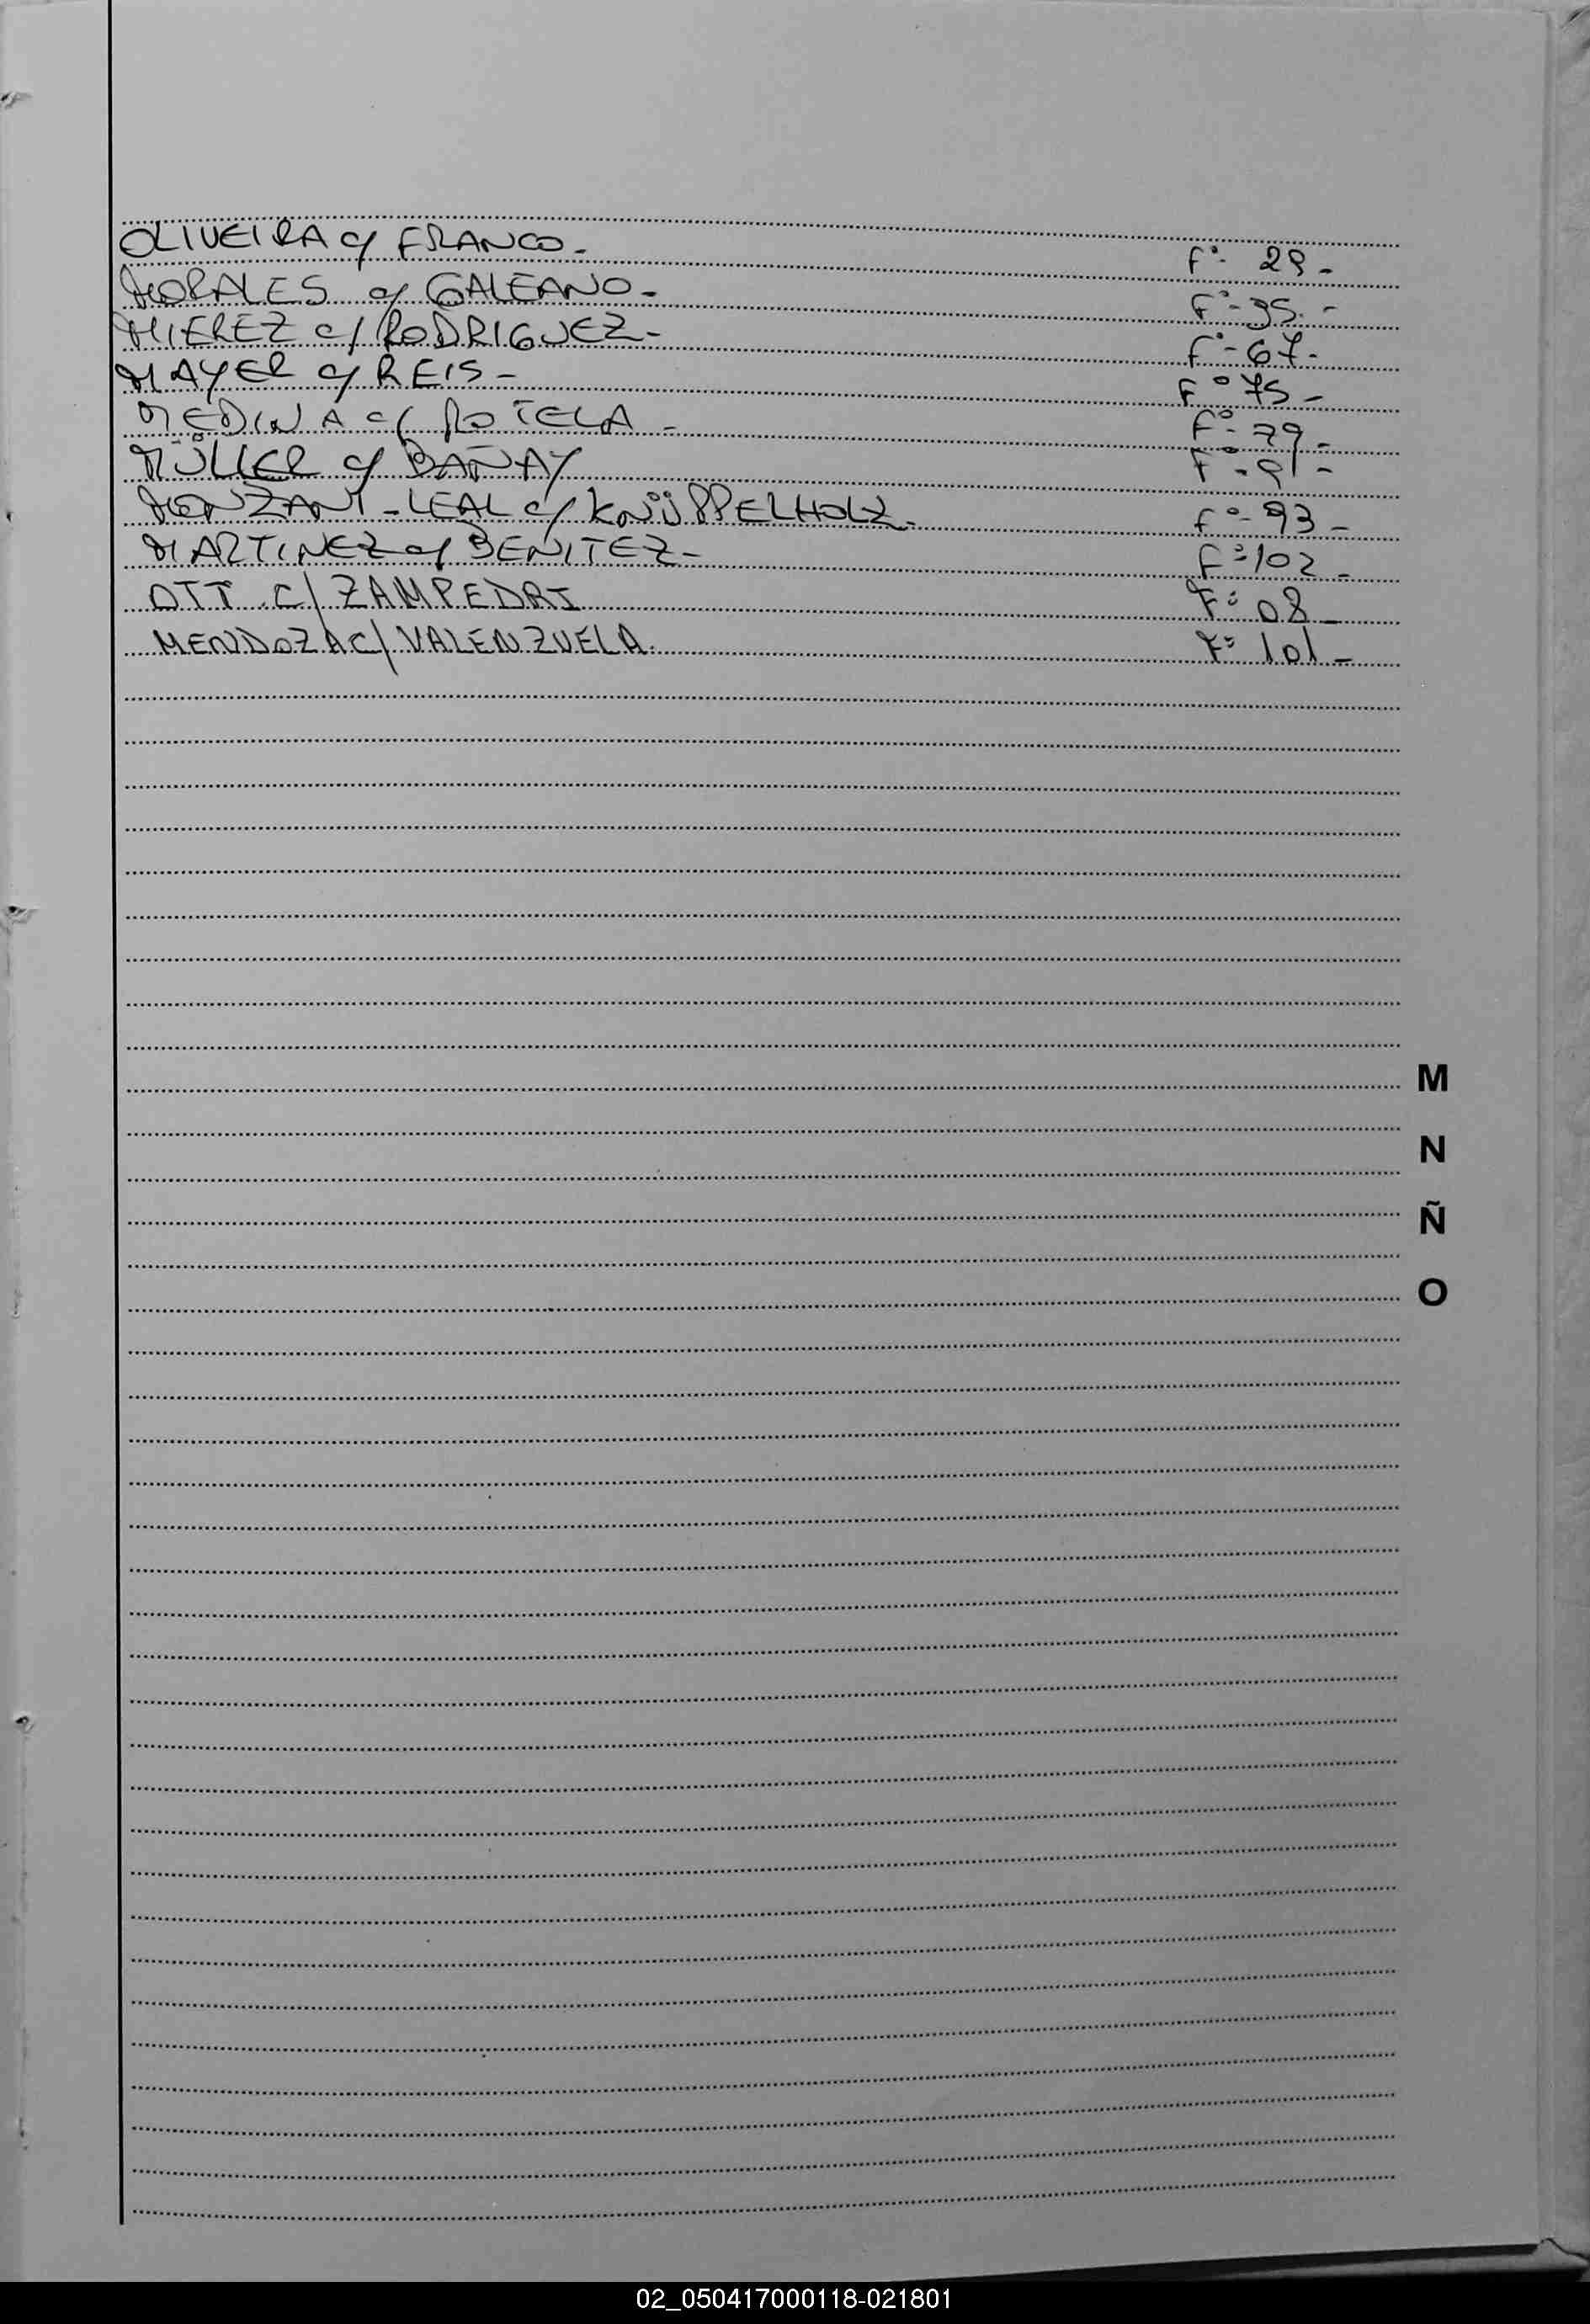 OLIVEIRA c/ FRANCO - F°- 29 -
MORALES c/ GALEANO - F°- 35 -
MIEREZ c/ RODRIGUEZ - F°- 67 -
MAYER c/ REIS - F° 75 -
MEDINA c/ ROTELA - F°- 79 -
MÜLLER c/ BAÑAY F°- 91 -
MONZANI - LEAL c/ KNÜPPELHOLZ - F°- 93 -
MARTINEZ c/ BENITEZ - F° 102 -
OTT C/ ZAMPEDRI F° 08 -
MENDOZA C/ VALENZUELA. F° 101 -
M
N
Ñ
O
02_050417000118-021801